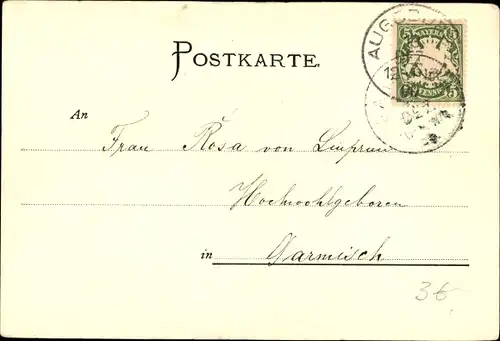 AUGSBURG
BAYERN
5 5
POSTKARTE.
An
Frau Rosa von
Hochwohlgeboren
in Garmisch
36